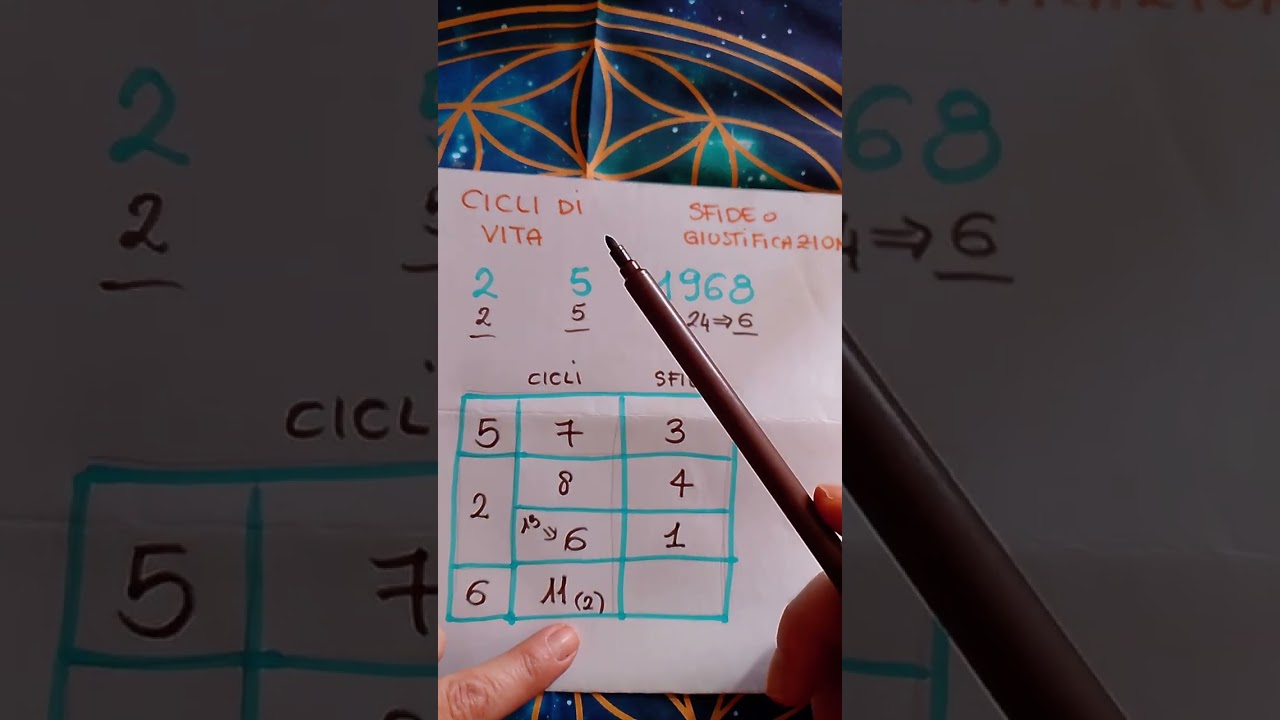 CICLI Di
VITA
SFIDE O
GIUSTIFICAZION
2 5 1968
2 5 24⇒6
CICLI SFI
5 7 3
8 4
2
6 1
6 11(2)